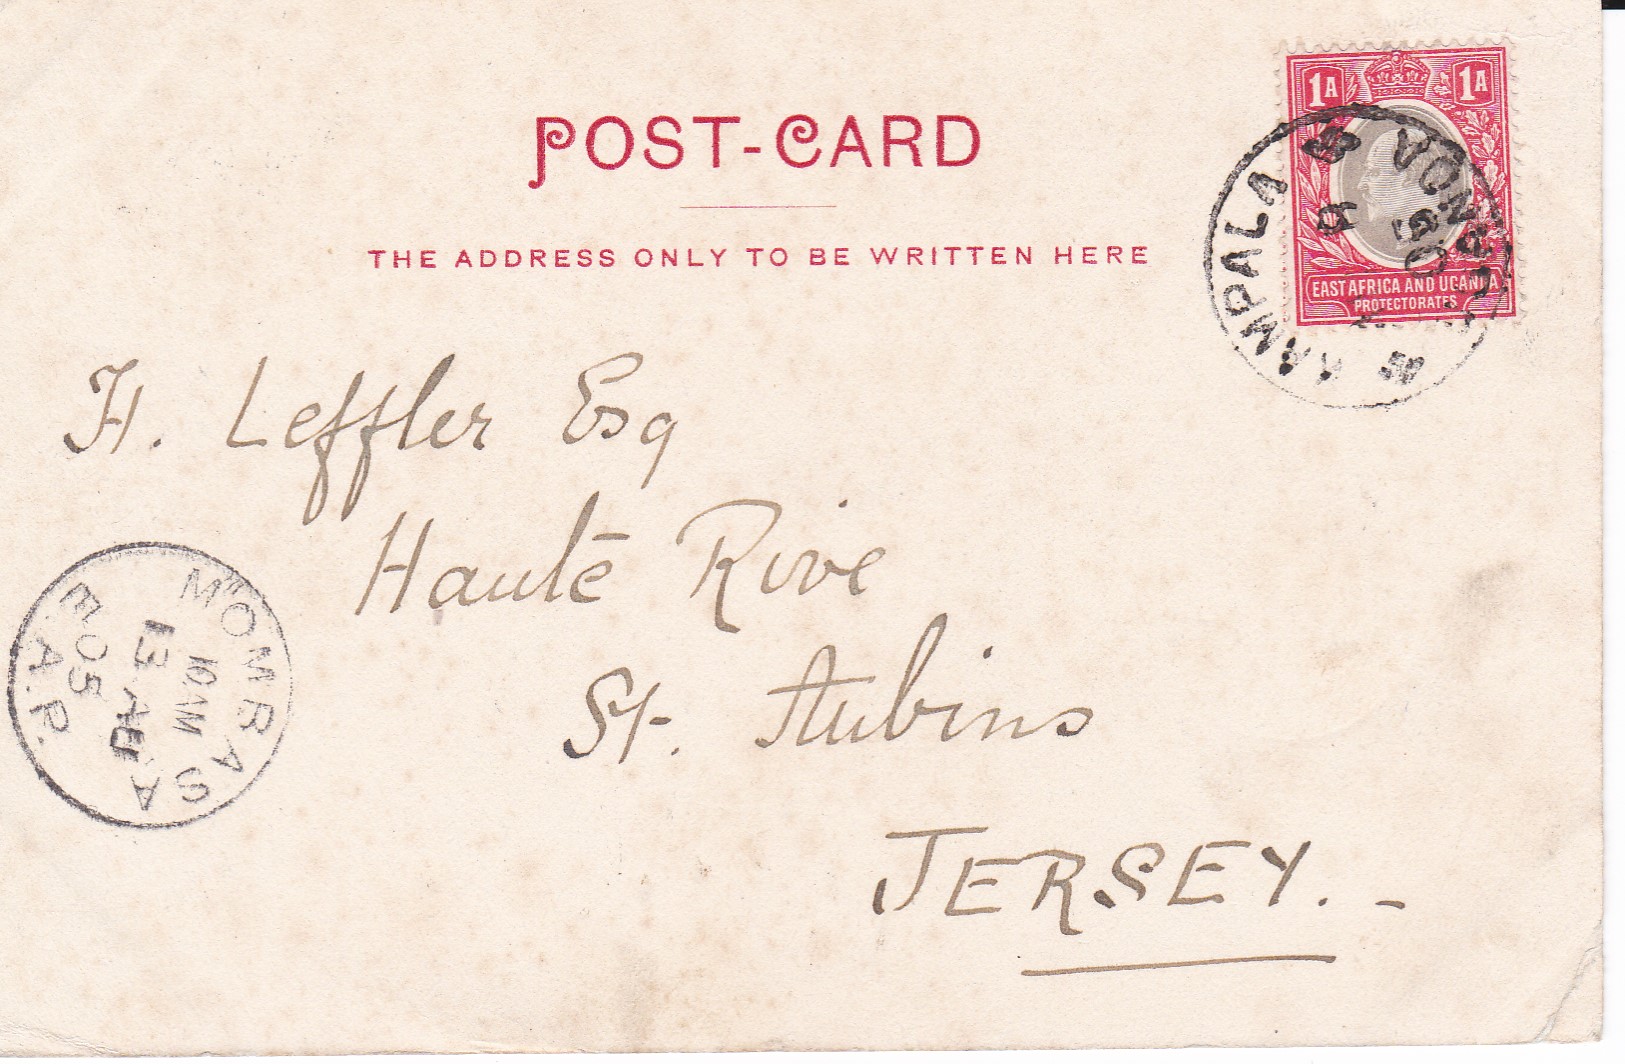 POST-CARD
THE ADDRESS ONLY TO BE WRITTEN HERE
1A 1A
EAST AFRICA AND UGANDA
PROTECTORATES
KAMPALA
05
H. Leffler Esq
Haute Rive
St. Aubins
JERSEY. -
MOMBASA
10 AM
13 AU
05
E.A.P.